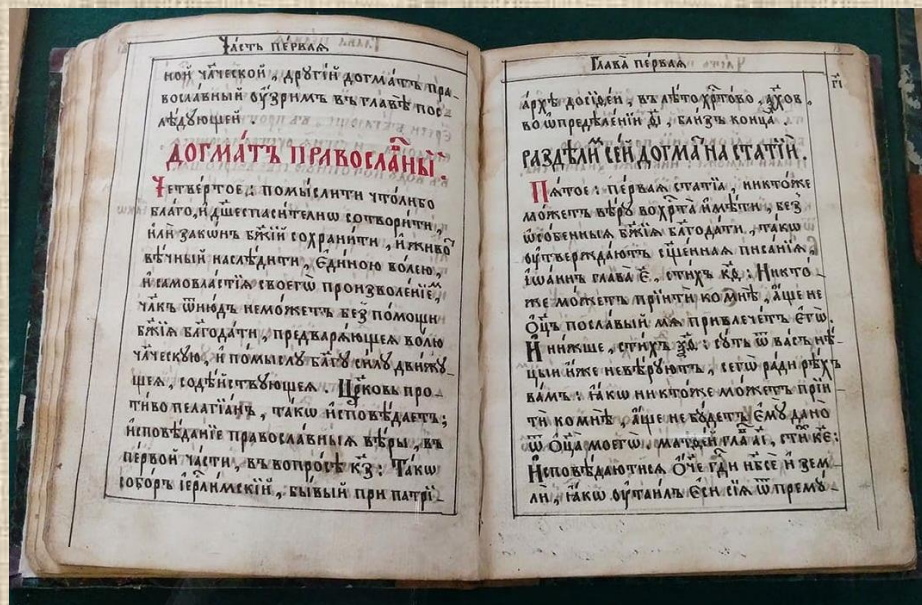 Ча́сть пе́рвая
ной чл҃ческой, другі́й догма́тъ пра
восла́вный ѹ҆́зримъ въ гла́вѣ пос
лѣ́дующей.
ДОГМА́ТЪ ПРАВОСЛА́ННЫ.
Четве́ртое: помы́слити что́либо
бла́го, и҆ дш҃еспаси́тельнѡ сотвори́ти,
и҆лѝ зако́нъ бж҃їй сохрани́ти, и҆ живо́
вѣ́чный наслѣ́дити, є҆ди́ною во́лею,
и҆ самовла́стїѧ своегѡ̀ произволе́нїе,
чл҃къ ѿню́дъ немо́жетъ без̾ по́мощи
бж҃їѧ бл҃года́ти, предварѧ́ющеѧ во́лю
чл҃ческую, и҆ по́мыслу бл҃гу си́лу дви́жу
щеѧ, содѣ́йствующеѧ. Цр҃ковь про
ти́во пелагїа́нъ, та́кѡ и҆сповѣ́даетъ;
и҆сповѣ́данїе правосла́вныѧ вѣ́ры, въ
пе́рвой ча́сти, въ вопро́сѣ к҃з: Та́кѡ
собо́ръ і҆ерл҃и́мскїй, бы́вый при патрї
Глава̀ пе́рваѧ
г҃і
а́рхѣ досіѳе́и, въ лѣ́то хрто́во, а҂хо́в.
во ѡ҆предѣле́нїи д҃і, бли́зъ конца̀
РАЗДѢЛИ́ СЕ́Й ДОГМА́ НА СТАТІЍ.
Пѧ́тое: пе́рваѧ статїа̀, никто́же
мо́жетъ вѣ́ру во хр҃та̀ и҆мѣ́ти, без̾
ѡ҆со́бенныѧ бж҃їѧ бл҃года́ти, та́кѡ
ѹ҆твержда́ютъ сщ҃е́ннаѧ писа́нїѧ,
і҆ѡа́ннъ глава̀ є҃, сти́хъ к҃ѳ: Никто́
же мо́жетъ прїитѝ ко мнѣ̀, а҆́ще не
Ѻ҆ц҃ъ посла́вый мѧ̀ привлече́тъ є҆го̀.
И҆ ни́жше, сти́хъ ѯ҃д: су́ть ѿ ва́съ нѣ́
цыи и҆́же невѣ́руютъ, сегѡ̀ ра́ди рѣ́хъ
ва́мъ: ꙗ҆́кѡ никто́же мо́жетъ прїи
тѝ ко мнѣ̀, а҆́ще не бу́детъ є҆мꙋ̀ дано̀
ѿ Ѻ҆ц҃а̀ моегѡ̀. матѳе́й гла҃ а҃і, сти҃ к҃є:
И҆сповѣ́даютисѧ Ѻ҆́че гдⷭ҇и нб҃сѐ и҆ зем
лѝ, ꙗ҆́кѡ ѹ҆таи́лъ є҆сѝ сїѧ̀ ѿ прему